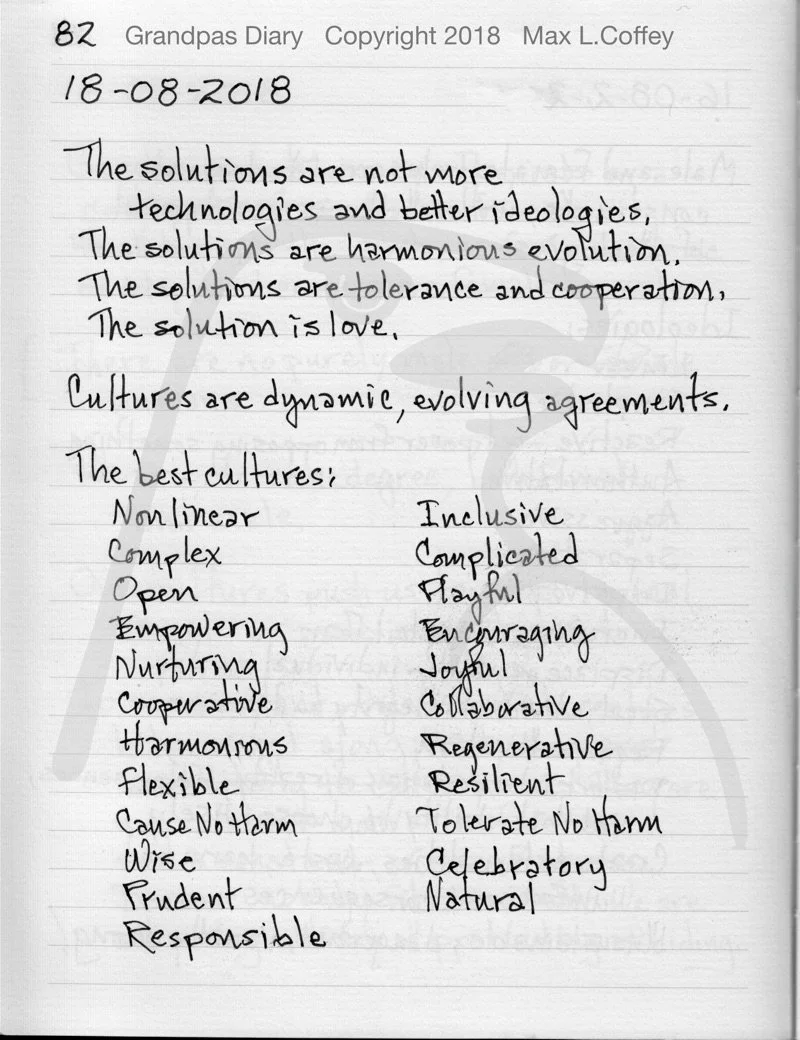 82 Grandpas Diary Copyright 2018 Max L.Coffey
18-08-2018
The solutions are not more
technologies and better ideologies.
The solutions are harmonious evolution.
The solutions are tolerance and cooperation.
The solution is love.
Cultures are dynamic, evolving agreements.
The best cultures:
Nonlinear Inclusive
Complex Complicated
Open Playful
Empowering Encouraging
Nurturing Joyful
Cooperative Collaborative
Harmonious Regenerative
Flexible Resilient
Cause No Harm Tolerate No Harm
Wise Celebratory
Prudent Natural
Responsible